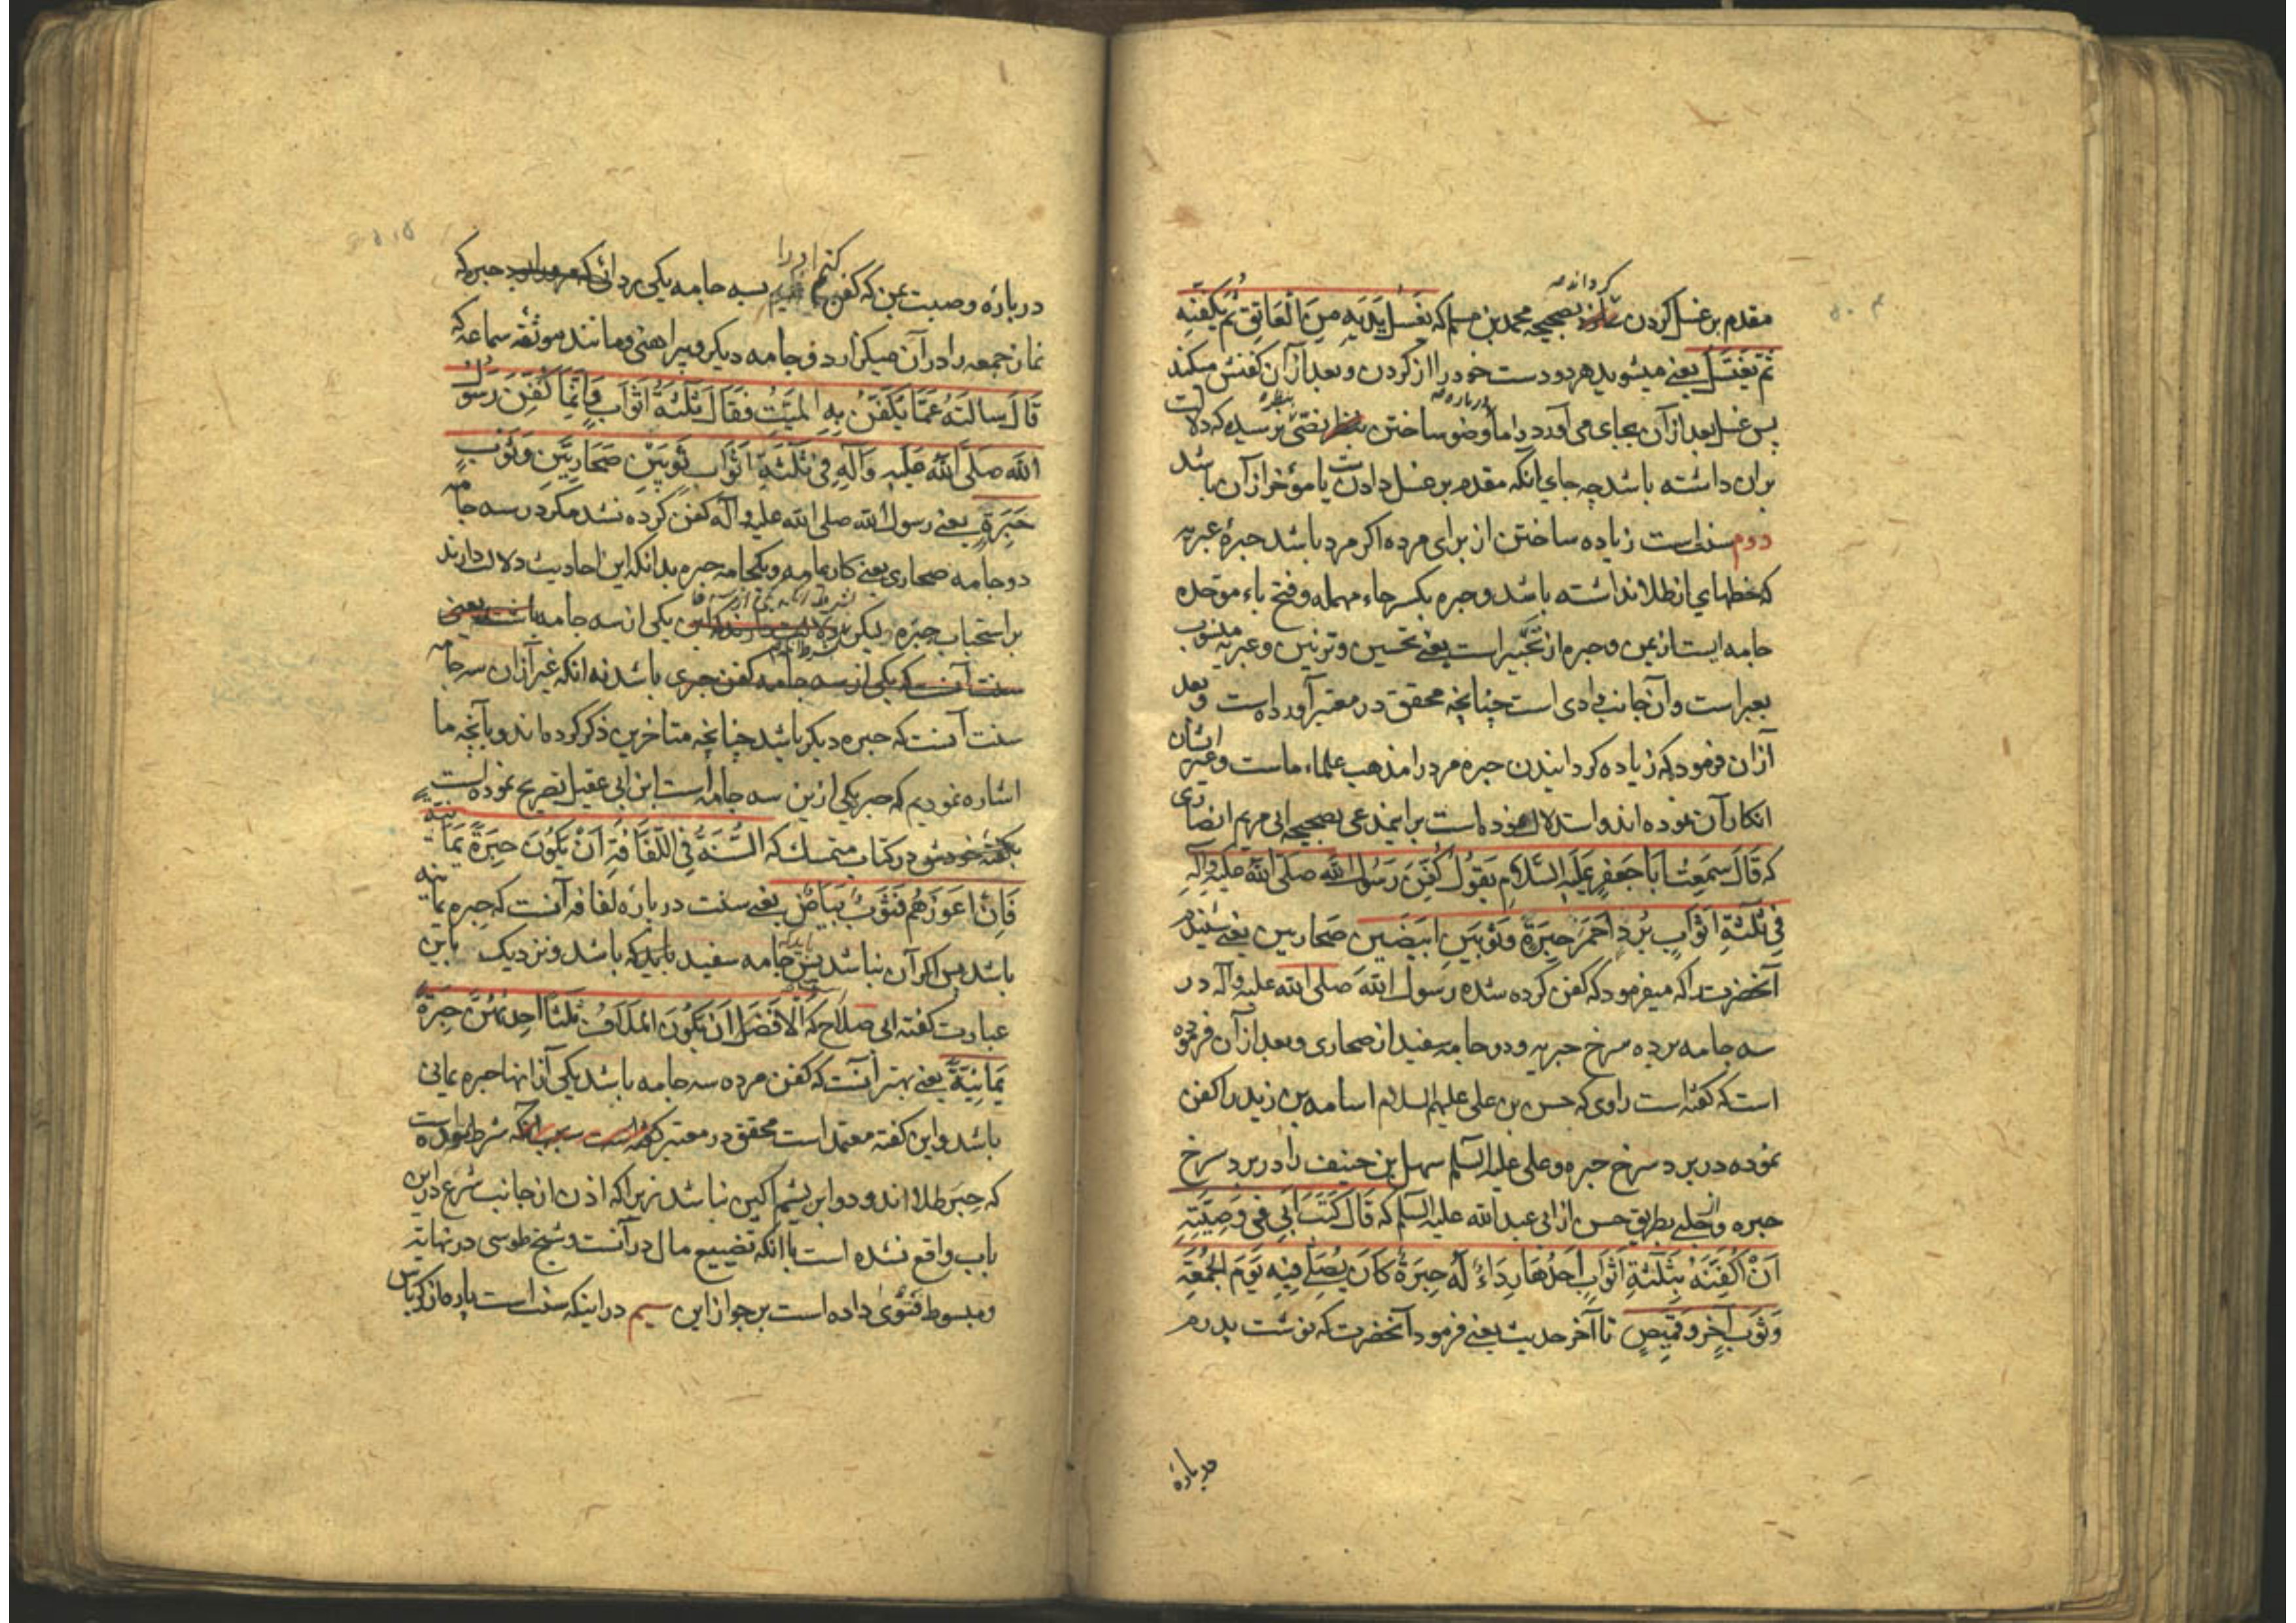 کرداندہ
مقدم بر غسل کردن بصحیحه محمد بن مسلم که یَغسِلُ یَدَیهِ مِنَ العَاتِقِ ثُمَّ یُکَفِّنُه
ثُمَّ یَغتَسِلُ یعنی میشوید هر دو دست خود را از کردن و بعد از آن کفنش میکند
پس غسل بعد از آن بجای می آورد و اما درباره وضو ساختن نصّی نرسیده که دلالت
بران داشته باشد چه جای انکه مقدم بر غسل دادنش یا مؤخر ازآن باشد
دوم سنت است زیاده ساختن از برای مرده اکر مرد باشد حبرهٔ عبریه
که خطهای از طلا نداشته باشد و حبره بکسر حاء مهمله و فتح باء موحده
جامه ایست از یمن و حبره از تحبیر است یعنی تحسین و تزیین و عبریه منسوب
بعبر است و آن جانب وادی است چنانچه محقق در معتبر آورده است و بعد
ازان فرموده که زیاده کردانیدن حبره مرد را مذهب علماء ماست و غیر ایشان
انکار آن نموده اند و استدلال نموده است براینمدعی بصحیحه ابی مریم انصاری
که قَالَ سَمِعتُ اَبَا جَعفَرٍ عَلَیهِ السَّلامِ یَقُولُ کُفِّنَ رَسُولُ اللّه صَلَّی اللّهُ عَلَیهِ وَآلِهِ
فِی ثَلٰثَةِ اَثوَابٍ بُردٍ اَحمَرَ حِبَرَةٍ وَثَوبَینِ اَبیَضَینِ صَحَاریین یعنی شنیدم
آنحضرت را که میفرمود که کفن کرده شده رسول اللّه صلی اللّه علیه و آله در
سه جامه برده سرخ حبریه و دو جامه سفید از صحاری و بعد از آن فرموده
است که کفته است راوی که حسن بن علی علیهم السلام اسامه بن زید را کفن
نموده در برد سرخ حبره و علی علیه السلم سهل بن حنیف را در برد سرخ
حبره و از حلبی بطریق حسن از ابی عبد اللّه علیه السلم که قَالَ کَتَبَ اَبِی فِی وَصِیَّتِهِ
اَنْ اُکَفِّنَهُ بِثَلٰثَةِ اَثوَابٍ اَحَدُهَا رِدَاءٌ لَهُ حِبَرَةٌ کَانَ یُصَلِّی فِیهِ یَومَ الجُمُعَةِ
وَثَوبٍ آخَرَ وَ قَمِیصٍ تا آخر حدیث یعنی فرمود آنحضرت که نوشت پدرم
درباره
کنم اورا
درباره وصیت بمن که کفن بسه جامه یکی ردائی حبره که
نماز جمعه را در آن میکزارد و جامه دیکر و پیراهنی و مانند موثقه سماعه که
قَالَ سَالتَهُ عَمَّا یُکَفَّنُ بِهِ المَیِّتُ فَقَالَ ثَلٰثَةُ اَثوَابٍ فَاِنَّمَا کُفِّنَ رَسُولُ
اللّه صَلَّی اللّهُ عَلَیهِ وَآلِهِ فِی ثَلٰثَةِ اَثوَابٍ ثَوبَینِ صَحَارِیَّینِ وَثَوبٍ
حِبَرَةٍ یعنی رسول اللّه صلی اللّه علیه و آله کفن کرده نشد مکر در سه جامه
دو جامه صحاری یعنی کار یمامه و یکجامه حبره بدانکه این احادیث دلالت دارند
بر استحباب حبره و لیکن یکی از سه جامه باشد یعنی
سنت آنست که یکی از سه جامه کفن حبری باشد نه انکه غیر ازان سه جامه
سنت آنست که حبره دیکر باشد چنانچه متاخرین ذکر کرده اند و بآنچه ما
اشاره نمودیم که حبر یکی ازین سه جامه است ابن ابی عقیل تصریح نموده است
بکفته خودش در کتاب متمسک که السُّنَّةُ فِی اللِّفَافَةِ اَنْ یَکُونَ حِبَرَةً یَمَانِیَّه
فَاِنْ اَعوَزَهُم فَثَوبٌ بَیَاضٌ یعنی سنت درباره لفافه آنست که حبره یمانیه
باشد پس اکر آن نباشد پس جامه سفید باید که باشد و نزدیک باین
عبارت کفته ابی صلاح که اَلاَفضَلُ اَن یَکُونَ المَلَافُّ ثَلٰثًا اِحدٰیهُنَّ حِبَرَةٌ
یَمَانِیَّةٌ یعنی بهتر آنست که کفن مرده سه جامه باشد یکی از آنها حبره یمانی
باشد و این کفته معتمد است محقق در معتبر شرط نموده است
که حبره طلا اندود و ابریشم اکین نباشد زیراکه اذن از جانب شرع دراین
باب واقع نشده است باانکه تضییع مال در آنست و شیخ طوسی در نهایه
و مبسوط فتوی داده است بر جواز این سیم در اینکه سنت است پاره از کرباس